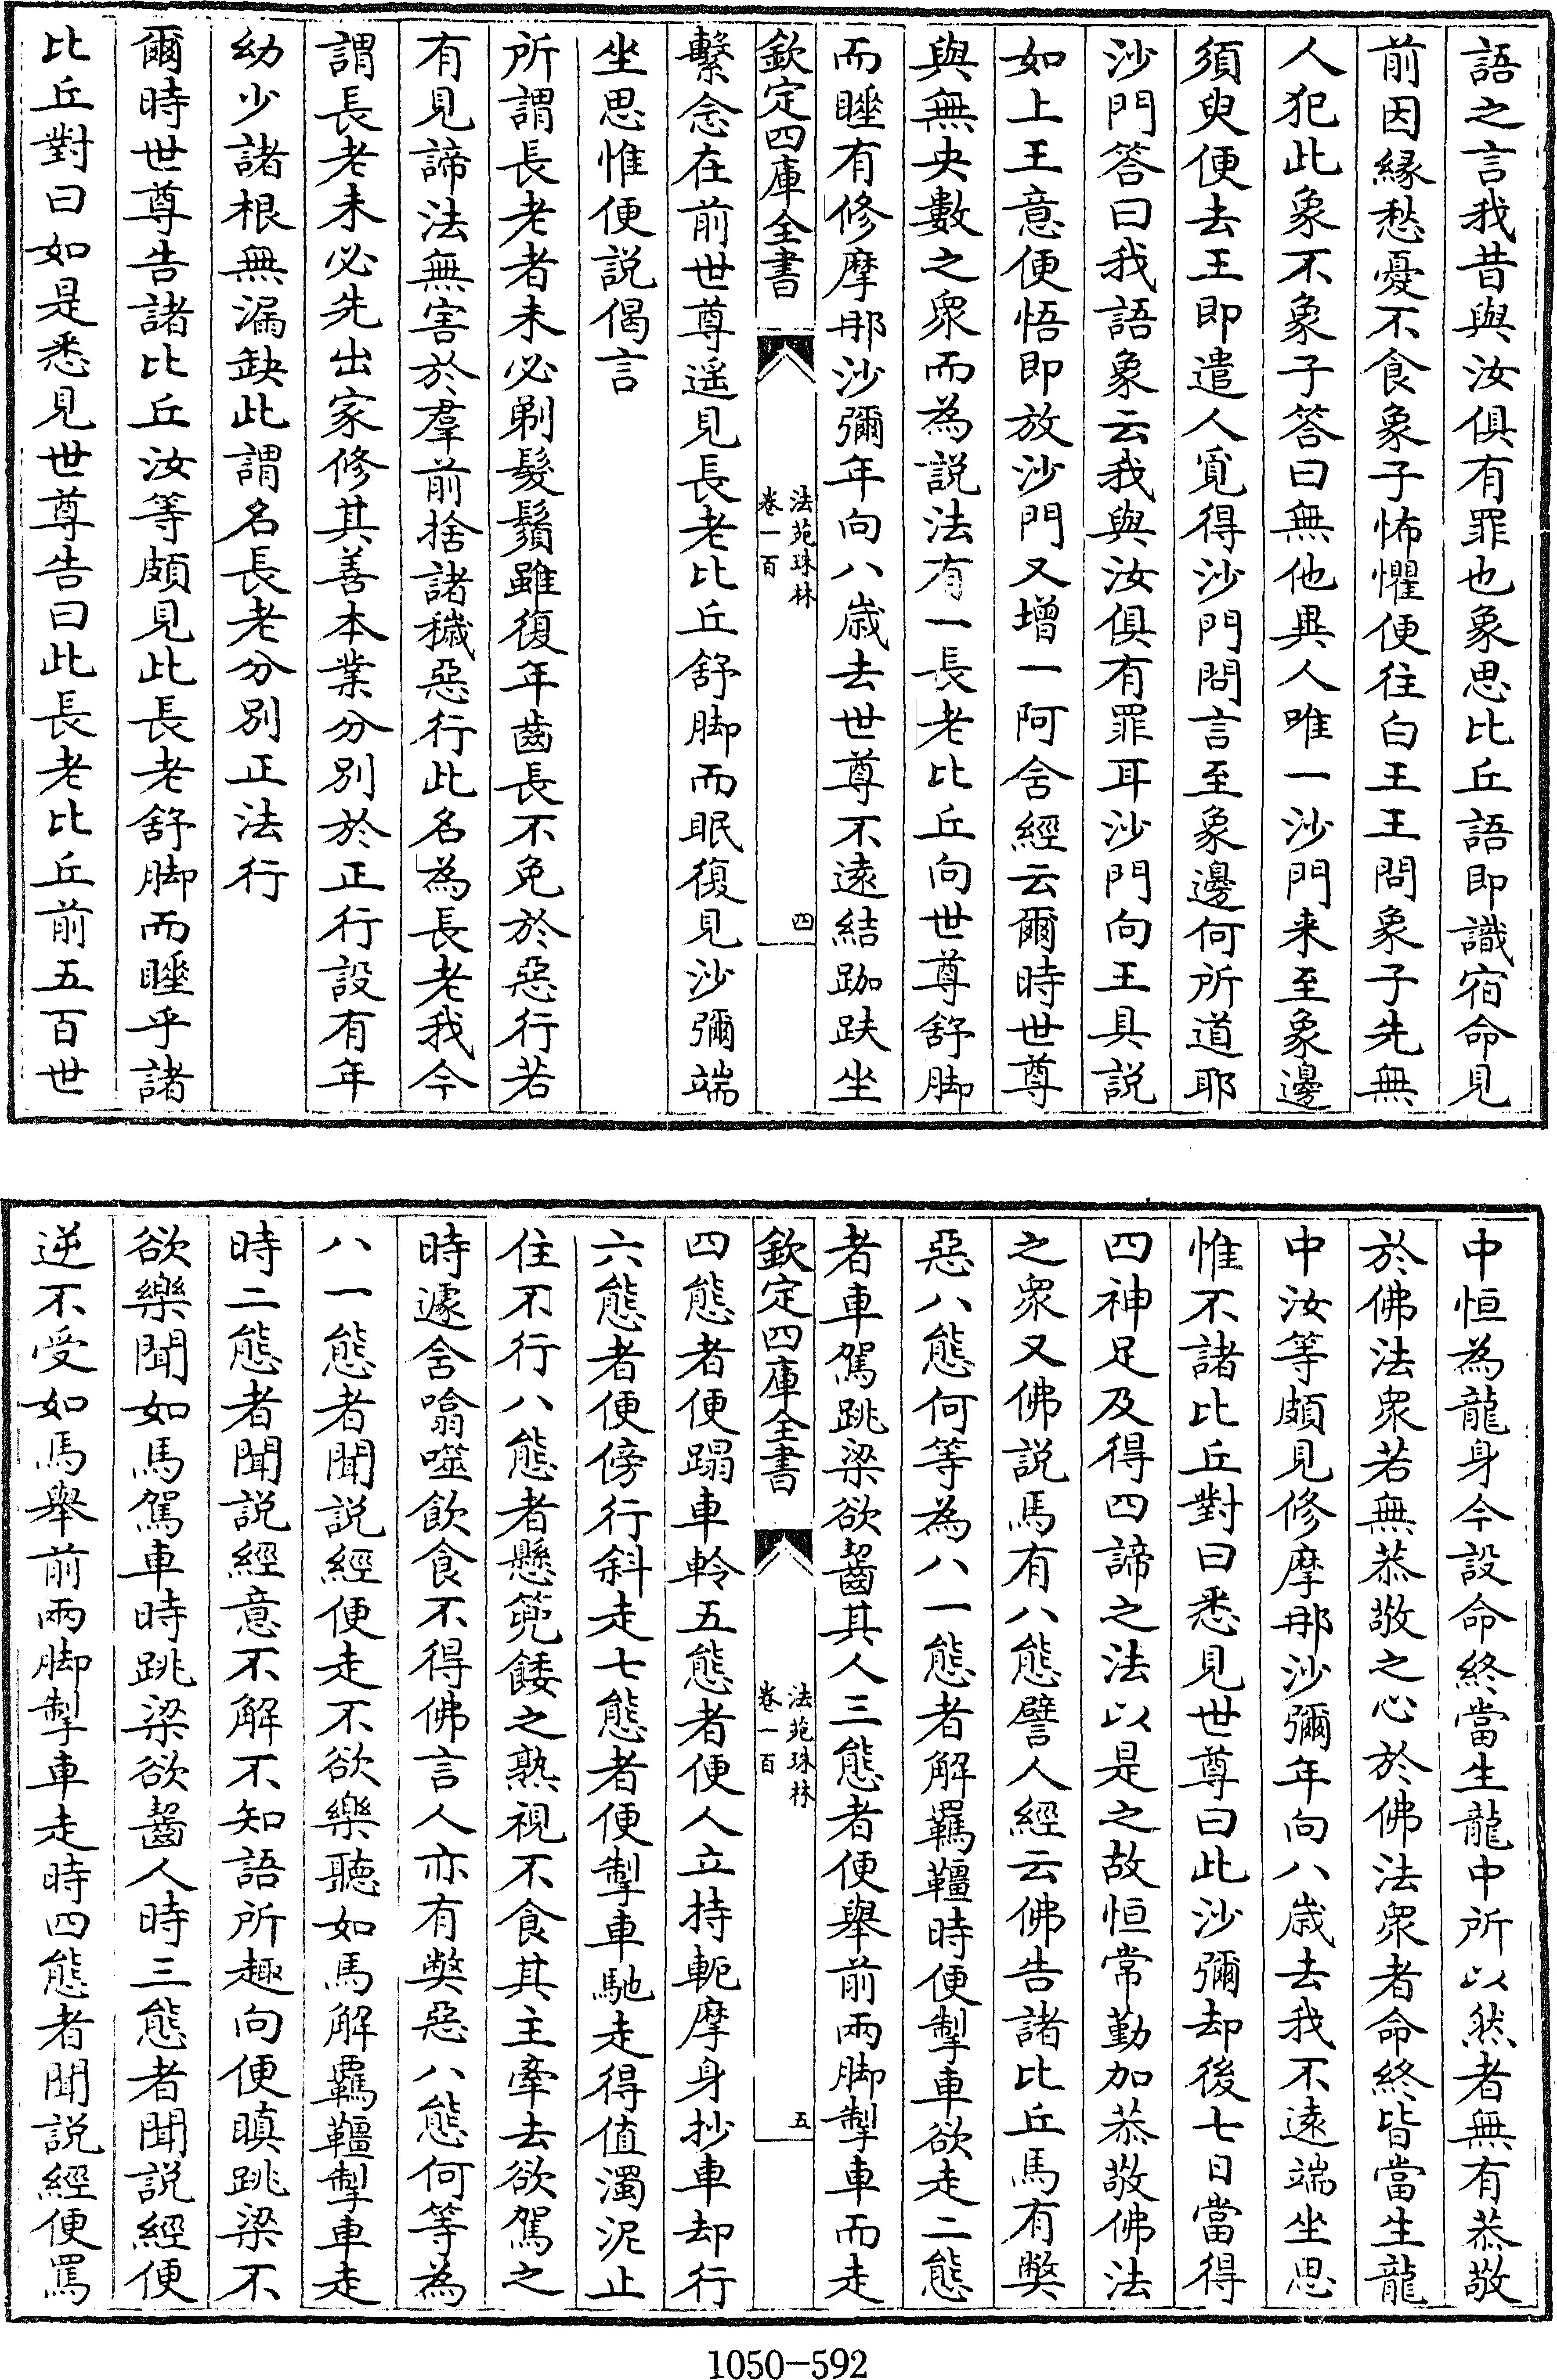 語之言我昔與汝俱有罪也象思比丘語即識宿命見
前因縁愁憂不食象子怖懼便往白王王問象子先無
人犯此象不象子答曰無他異人唯一沙門来至象邊
須臾便去王即遣人覓得沙門問言至象邊何所道耶
沙門答曰我語象云我與汝俱有罪耳沙門向王具説
如上王意便悟即放沙門又增一阿含經云爾時世尊
與無央數之衆而為説法有一長老比丘向世尊舒脚
而睡有修摩那沙彌年向八歳去世尊不遠結跏趺坐
欽定四庫全書
法苑珠林
卷一百
四
繫念在前世尊遥見長老比丘舒脚而眠復見沙彌端
坐思惟便説偈言
所謂長老者未必剃髮鬚雖復年齒長不免於惡行若
有見諦法無害於羣前捨諸穢惡行此名為長老我今
謂長老未必先出家修其善本業分别於正行設有年
幼少諸根無漏缺此謂名長老分别正法行
爾時世尊告諸比丘汝等頗見此長老舒脚而睡乎諸
比丘對曰如是悉見世尊告曰此長老比丘前五百世
中恒為龍身今設命終當生龍中所以然者無有恭敬
於佛法衆若無恭敬之心於佛法衆者命終皆當生龍
中汝等頗見修摩那沙彌年向八歳去我不遠端坐思
惟不諸比丘對曰悉見世尊曰此沙彌却後七日當得
四神足及得四諦之法以是之故恒常勤加恭敬佛法
之衆又佛説馬有八態譬人經云佛告諸比丘馬有弊
惡八態何等為八一態者解羈韁時便掣車欲走二態
者車駕跳梁欲齧其人三態者便舉前兩脚掣車而走
欽定四庫全書
法苑珠林
卷一百
五
四態者便蹋車軨五態者便人立持軛摩身抄車却行
六態者便傍行斜走七態者便掣車馳走得值濁泥止
住不行八態者懸篼餧之熟視不食其主牽去欲駕之
時遽含噏噬飲食不得佛言人亦有弊惡八態何等為
八一態者聞説經便走不欲樂聽如馬解羈韁掣車走
時二態者聞説經意不解不知語所趣向便瞋跳梁不
欲樂聞如馬駕車時跳梁欲齧人時三態者聞説經便
逆不受如馬舉前兩脚掣車走時四態者聞説經便罵
1050-592